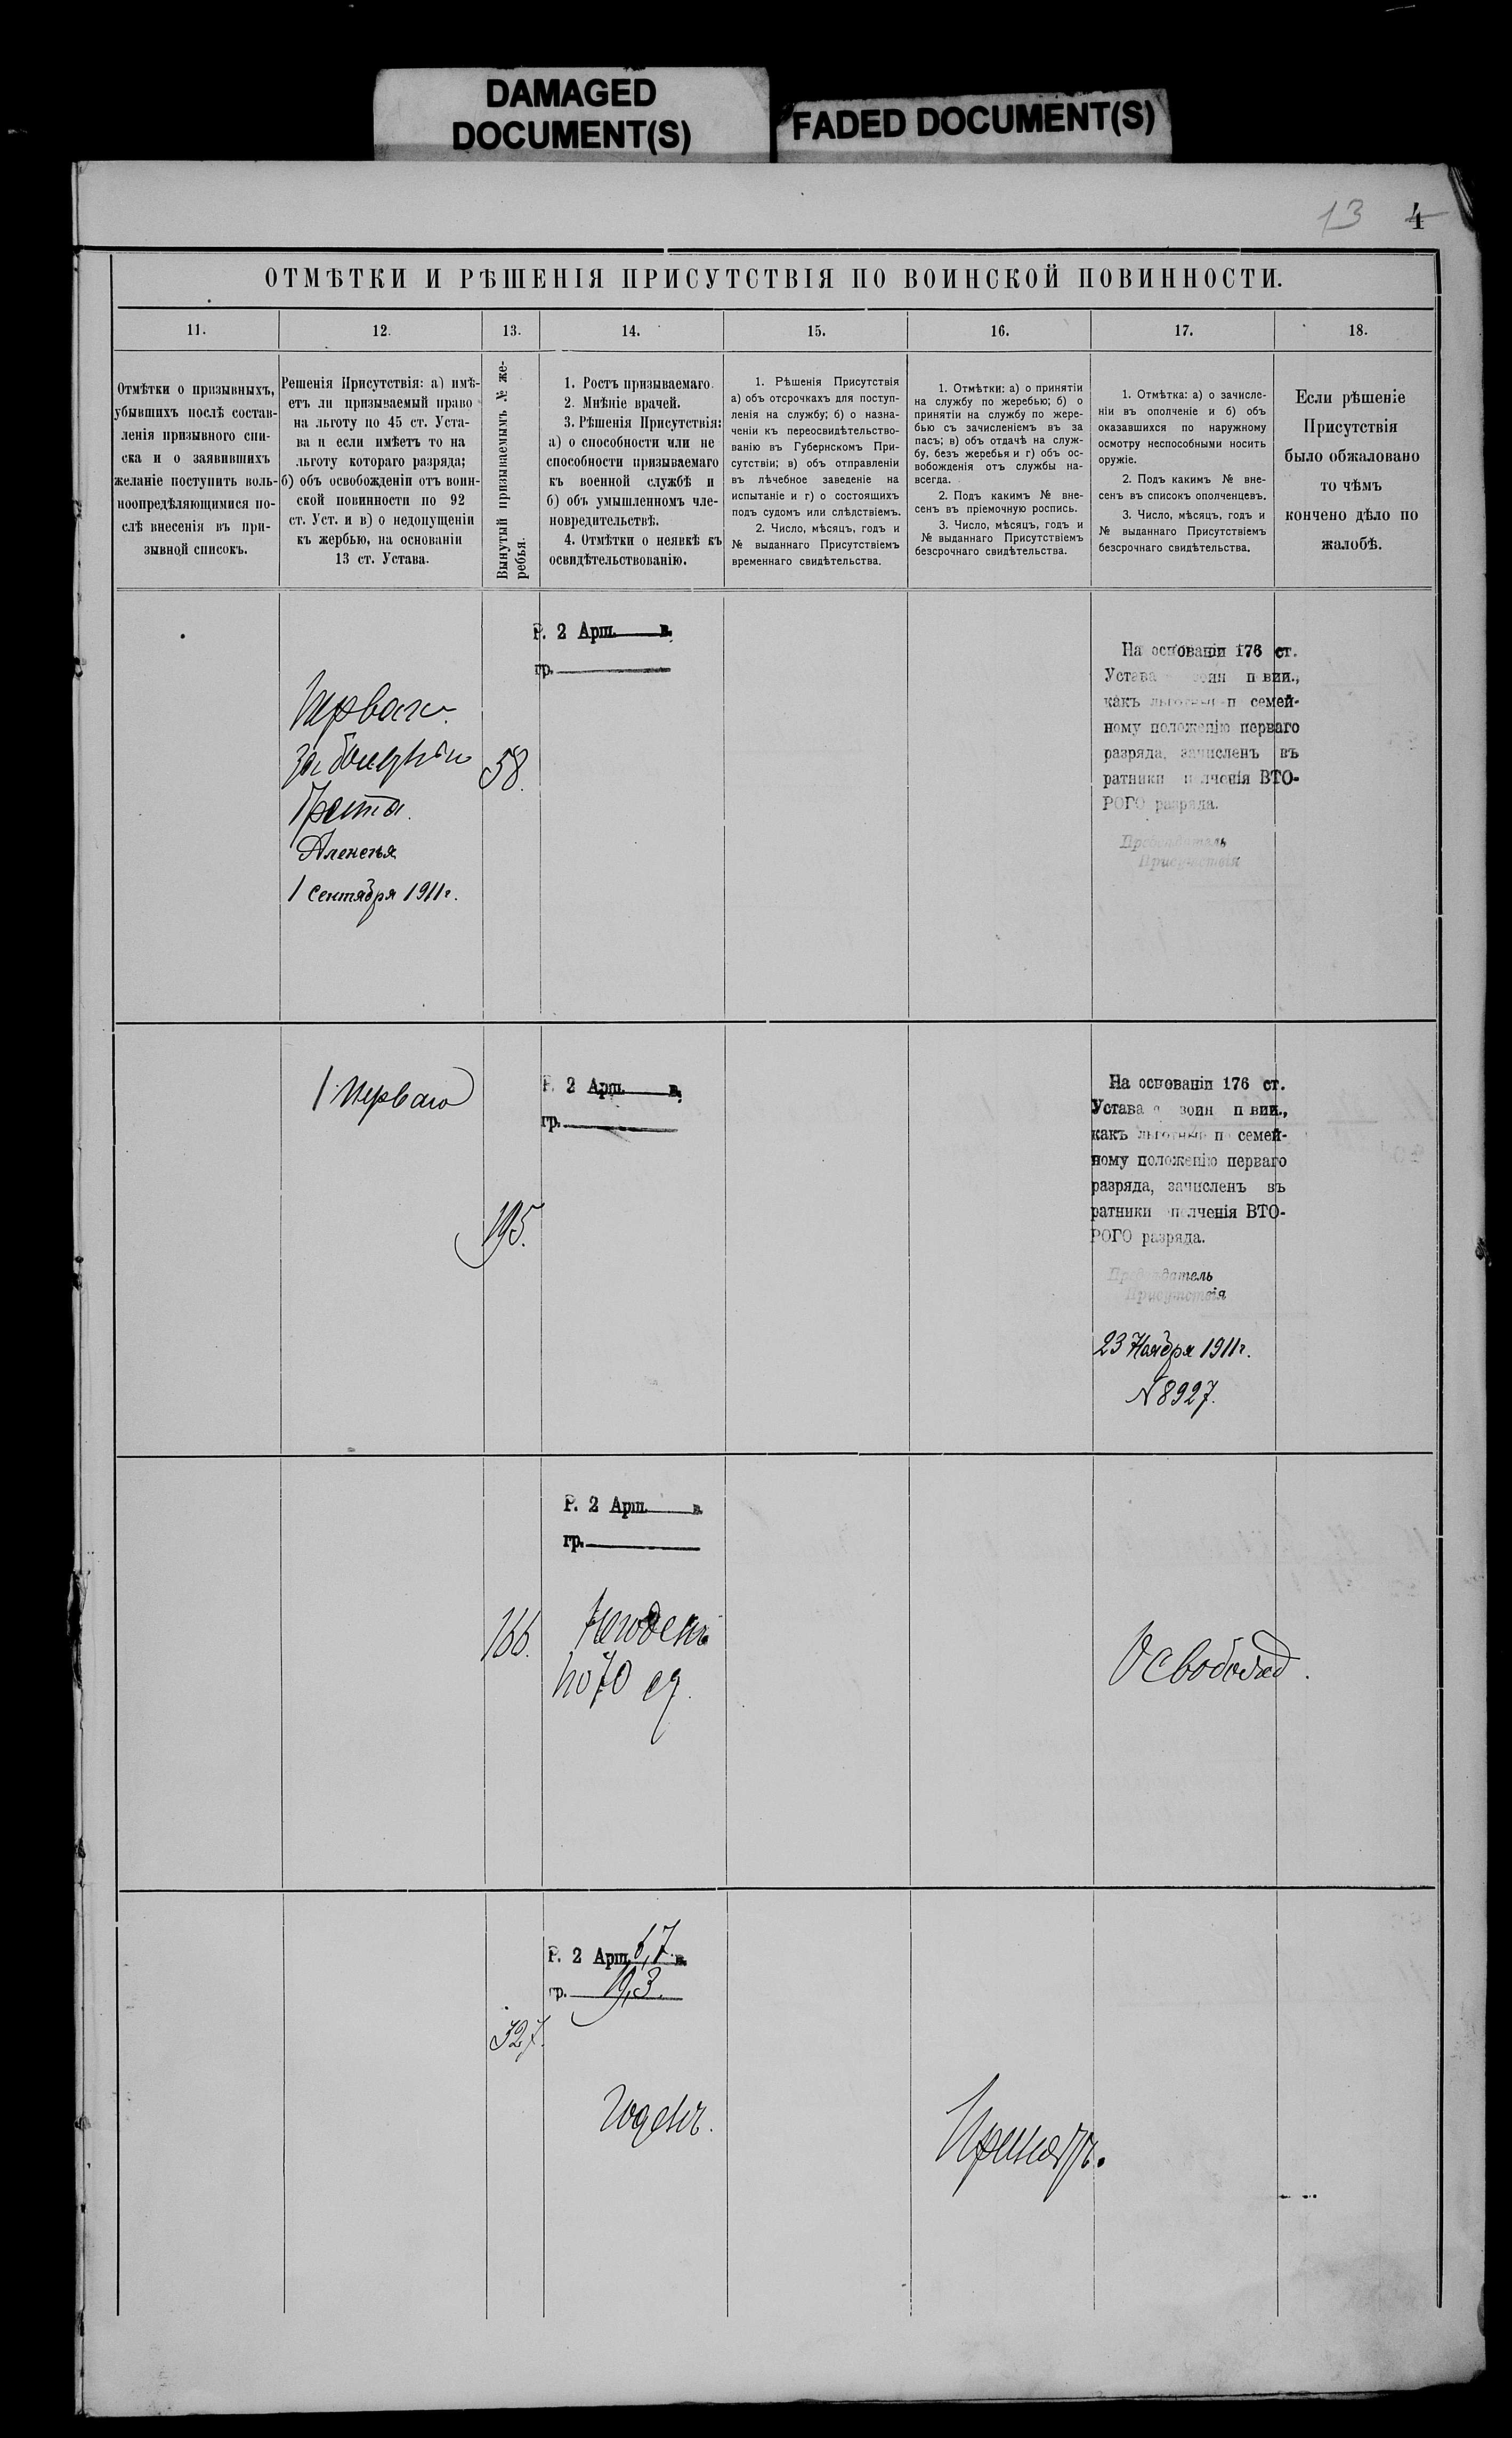 DAMAGED
DOCUMENT(S)
FADED DOCUMENT(S)
13 4
ОТМѢТКИ И РѢШЕНІЯ ПРИСУТСТВІЯ ПО ВОИНСКОЙ ПОВИННОСТИ.
11.
12.
13.
14.
15.
16.
17.
18.
Отмѣтки о призывныхъ,
убывшихъ послѣ состав-
ленія призывного спи-
ска и о заявившихъ
желаніе поступить воль-
ноопредѣляющимися по-
слѣ внесенія въ при-
зывной списокъ.
Решенія Присутствія: а) имѣ-
етъ ли призываемый право
на льготу по 45 ст. Уста-
ва и если имѣетъ то на
льготу котораго разряда;
б) объ освобожденіи отъ воин-
ской повинности по 92
ст. Уст. и в) о недопущеніи
къ жербью, на основаніи
13 ст. Устава.
Вынутый призываемымъ № же-
ребья.
1. Ростъ призываемаго.
2. Мнѣніе врачей.
3. Рѣшенія Присутствія:
а) о способности или не
способности призываемаго
къ военной службѣ и
б) объ умышленномъ чле-
новредительствѣ.
4. Отмѣтки о неявкѣ къ
освидѣтельствованію.
1. Рѣшенія Присутствія
а) объ отсрочкахъ для поступ-
ленія на службу; б) о назна-
ченіи къ переосвидѣтельство-
ванію въ Губернскомъ При-
сутствіи; в) объ отправленіи
въ лѣчебное заведеніе на
испытаніе и г) о состоящихъ
подъ судомъ или слѣдствіемъ.
2. Число, мѣсяцъ, годъ и
№ выданнаго Присутствіемъ
временнаго свидѣтельства.
1. Отмѣтки: а) о принятіи
на службу по жеребью; б) о
принятіи на службу по жере-
бью съ зачисленіемъ въ за
пасъ; в) объ отдачѣ на служ-
бу, безъ жеребья и г) объ ос-
вобожденія отъ службы на-
всегда.
2. Подъ какимъ № вне-
сенъ въ пріемочную роспись.
3. Число, мѣсяцъ, годъ и
№ выданнаго Присутствіемъ
безсрочнаго свидѣтельства.
1. Отмѣтка: а) о зачисле-
ніи въ ополченіе и б) объ
оказавшихся по наружному
осмотру неспособными носить
оружіе.
2. Подъ какимъ № вне-
сенъ въ списокъ ополченцевъ.
3. Число, мѣсяцъ, годъ и
№ выданнаго Присутствіемъ
безсрочнаго свидѣтельства.
Если рѣшеніе
Присутствія
было обжаловано
то чѣмъ
кончено дѣло по
жалобѣ.
Перваго
брата
Алексѣя
1 Сентября 1911 г.
58.
Р. 2 Арш. в.
гр.
На основаніи 176 ст.
Устава воин п вин.,
какъ льготный п семей-
ному положенію перваго
разряда, зачисленъ въ
ратники лченія ВТО-
РОГО разряда.
Предсѣдатель
Присутствія
1 Перваго
195.
Р. 2 Арш. в.
гр.
На основаніи 176 ст.
Устава о воин п вин.,
какъ льготный п семей-
ному положенію перваго
разряда, зачисленъ въ
ратники п лченія ВТО-
РОГО разряда.
Предсѣдатель
Присутствія
23 Ноября 1911 г.
N 8927.
166.
Р. 2 Арш. в.
гр.
Негоденъ
по 70 ст.
Освобожд.
327.
Р. 2 Арш. 6,7 в.
гр. 19,3.
Годенъ.
Принятъ.